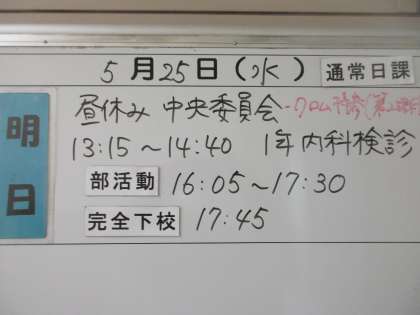 5月25日(水) 通常日課
明日
昼休み 中央委員会
13:15～14:40 1年内科検診
部活動 16:05～17:30
完全下校 17:45